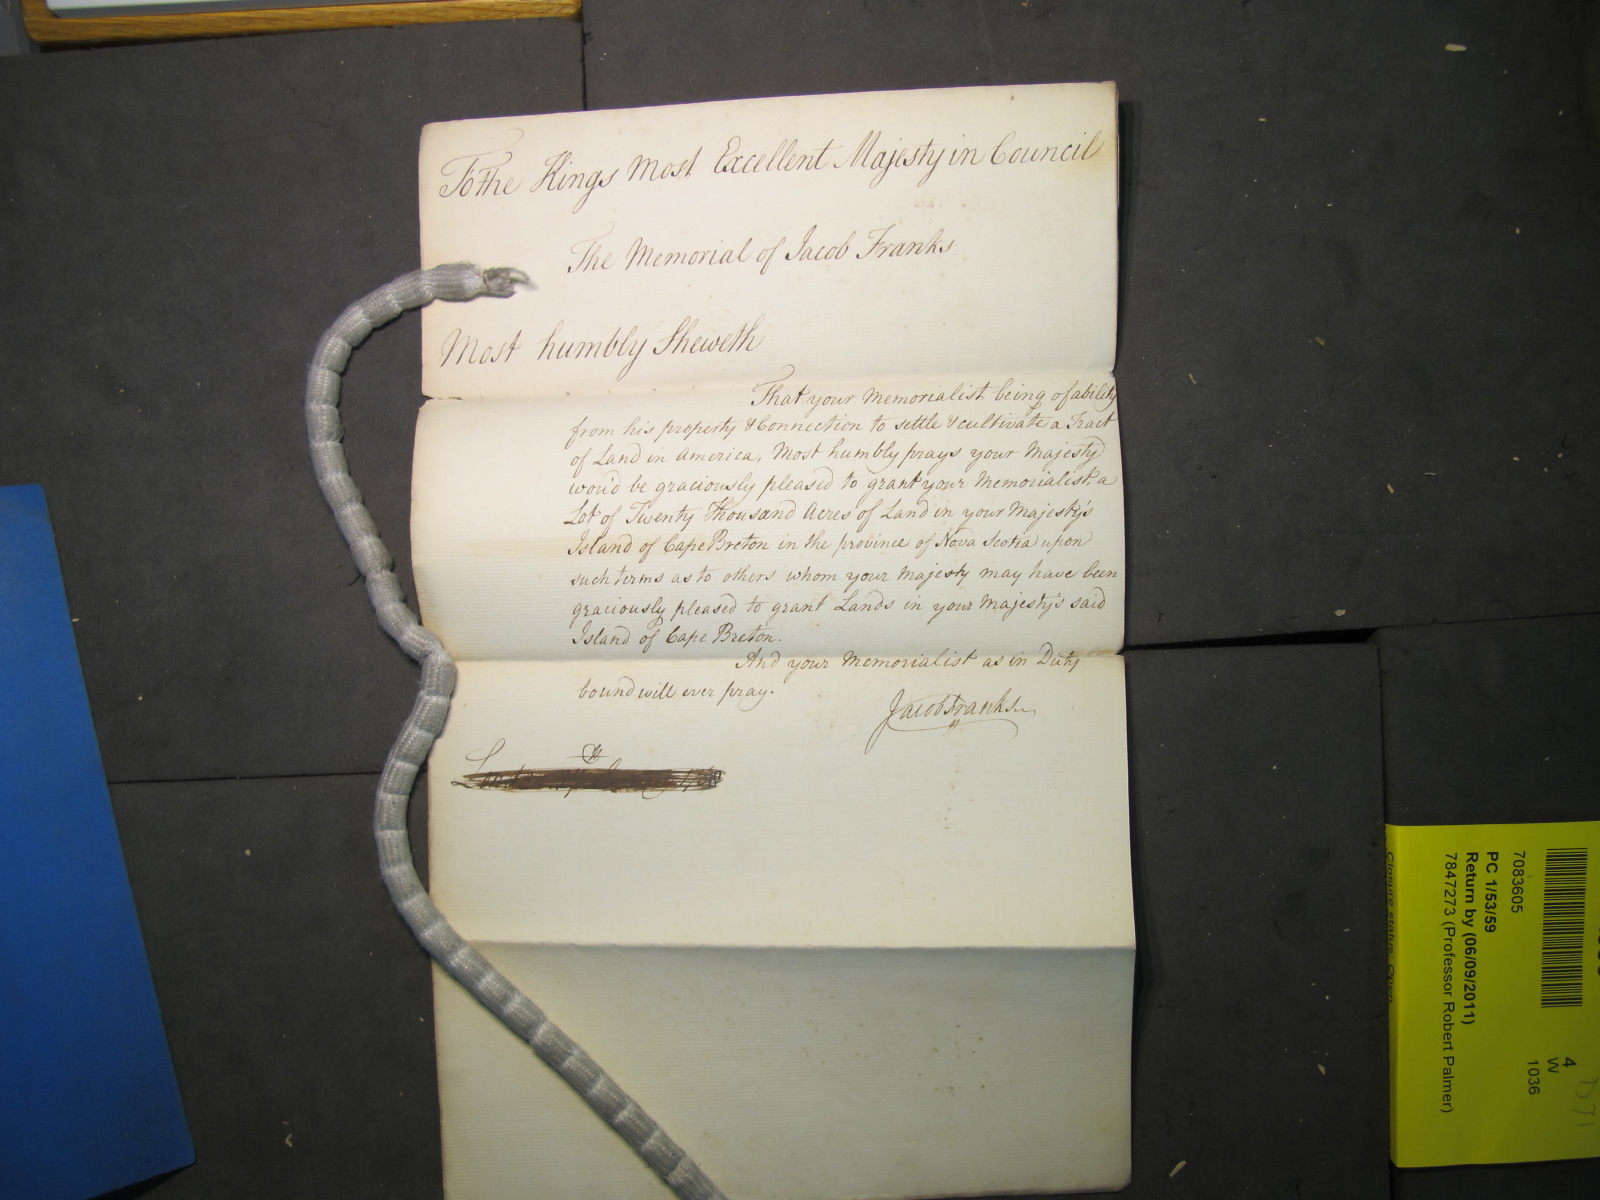 To the Kings Most Excellent Majesty in Council
The Memorial of Jacob Franks
Most humbly Sheweth
That your Memorialist being of ability
from his property & Connection to settle & cultivate a Tract
of Land in America, Most humbly prays your Majesty
wou'd be graciously pleased to grant your Memorialist a
Lot of Twenty Thousand Acres of Land in your Majesty's
Island of Cape Breton in the province of Nova Scotia upon
such terms as to others whom your Majesty may have been
graciously pleased to grant Lands in your Majesty's said
Island of Cape Breton.
And your Memorialist as in Duty
bound will ever pray.
Jacob Franks
7083605
PC 1/53/59
Return by (06/09/2011)
7847273 (Professor Robert Palmer)
Closure status: Open
4
W
1036